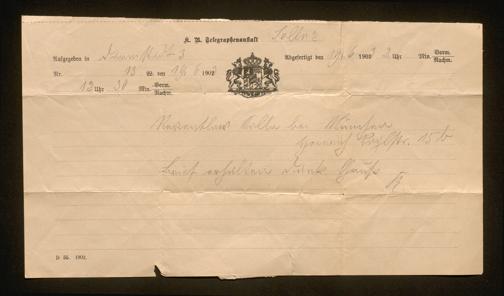 K. B. Telegraphenanstalt Solln
Aufgegeben in Darmstadt 3 Abgefertigt den 19/6 1903 2 Uhr Min. Vorm. Nachm.
Nr. 13 W. den 19/6 1903
12 Uhr 30 Min. Vorm. Nachm.
Reventlow Solln bei München
15 b
Brief erhalten Dank
D 55. 1902.